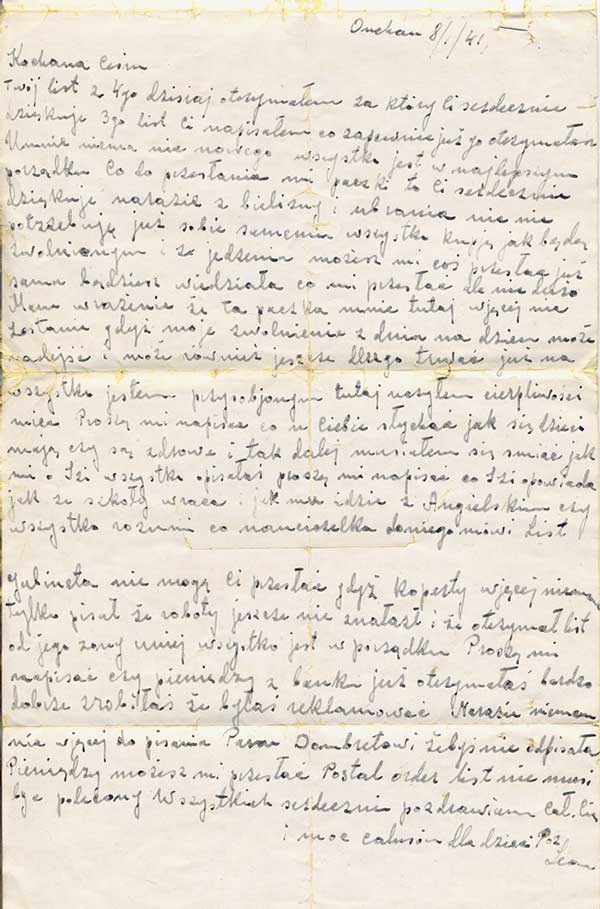 Onchan 8/1/41.
Kochana Cesiu
Twój list z 4go dzisiaj otrzymałem za który Ci serdecznie
dziękuje 3go list Ci napisałem co zapewnie już go otrzymałaś
Umnie niema nic nowego wszystko jest w najlepszym
porządku Co do przesłania mi paczki to Ci serdecznie
dziękuje narazie z bielizny i ubrania nic nie
potrzebuję już sobie samemu wszystko kupię jak będę
zwolnionym i ze jedzenia możesz mi coś przesłać już
sama będziesz wiedziała co mi przesłać ale nie dużo
Mam wrażenie że ta paczka mnie tutaj więcej nie
zostanie gdyż moje zwolnienie z dnia na dzień może
nadejść i może również jeszcze długo trwać już na
wszystko jestem tutaj cierpliwości
Proszę mi napisać co u Ciebie słychać jak się dzieci
mają czy są zdrowe i tak dalej musiałem się śmiać jak
mi o Izi wszystko opisałaś proszę mi napisać co Izi opowiada
jak ze szkoły wraca i jak mu idzie z Angielskim czy
wszystko rozumi co nauczicielka doniego mówi List
Gubineta nie mogę Ci przesłać gdyż koperty więcej niemam
tylko pisał że roboty jeszcze nie znalazł i że otrzymał list
od jego żony uniej wszystko jest w porządku Proszę mi
napisać czy pieniędzy z banku już otrzymałaś bardzo
dobrze zrobiłaś że byłaś reklamować Narazie niemam
nic więcej do pisania Panu Dombretowi żebyś nie odpisała
Pieniędzy możesz mi przesłać Postal order list nie musi
być polecony Wszystkich serdecznie pozdrawiam cał. Cię
i moc całusów dla dzieci Poz
Leon